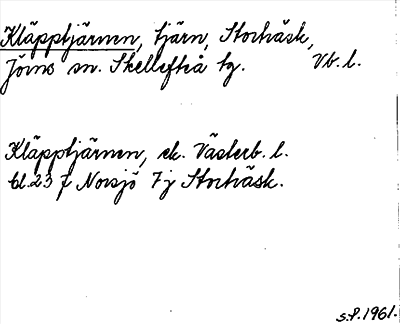 Kläpptjärnen, tjärn, Storträsk,
Jörns sn. Skellefteå tg. Vb. l.
Kläpptjärnen, ek. Västerb. l.
bl. 23 f Norsjö 7j Storträsk.
s.P. 1961.